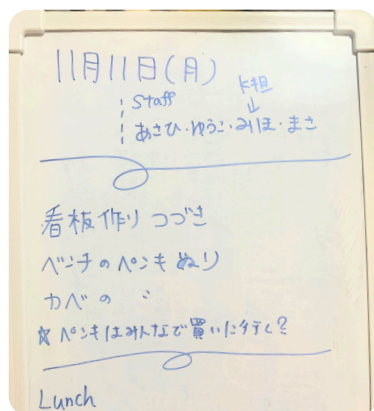 11月11日(月)
K担
↓
Staff
あさひ・ゆうこ・みほ・まさ
看板作りつづき
ベンチのペンキぬり
カベの 〃
☆ペンキはみんなで買いに行く?
Lunch